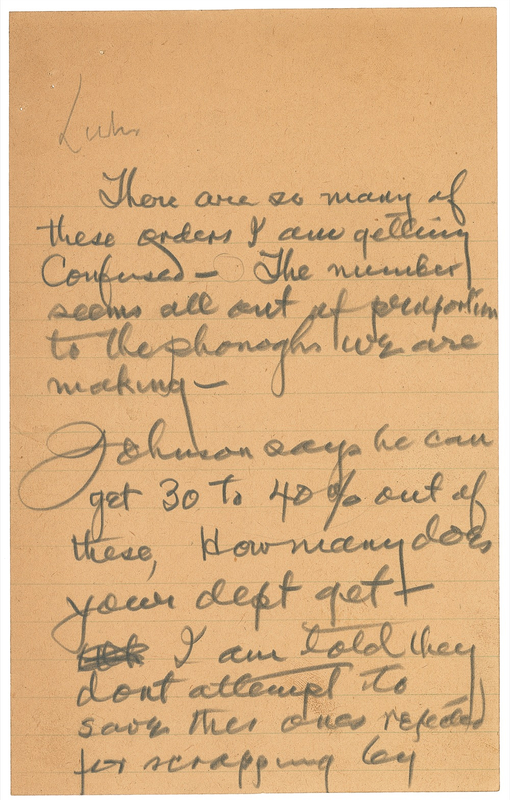 Luhr
There are so many of
these orders I am getting
Confused — The number
seems all out of proportion
to the phonoghs we are
making —
Johnson says he can
get 30 to 40% out of
these, How many does
your dept get —
I am told they
dont attempt to
save the ones rejected
for scrapping by